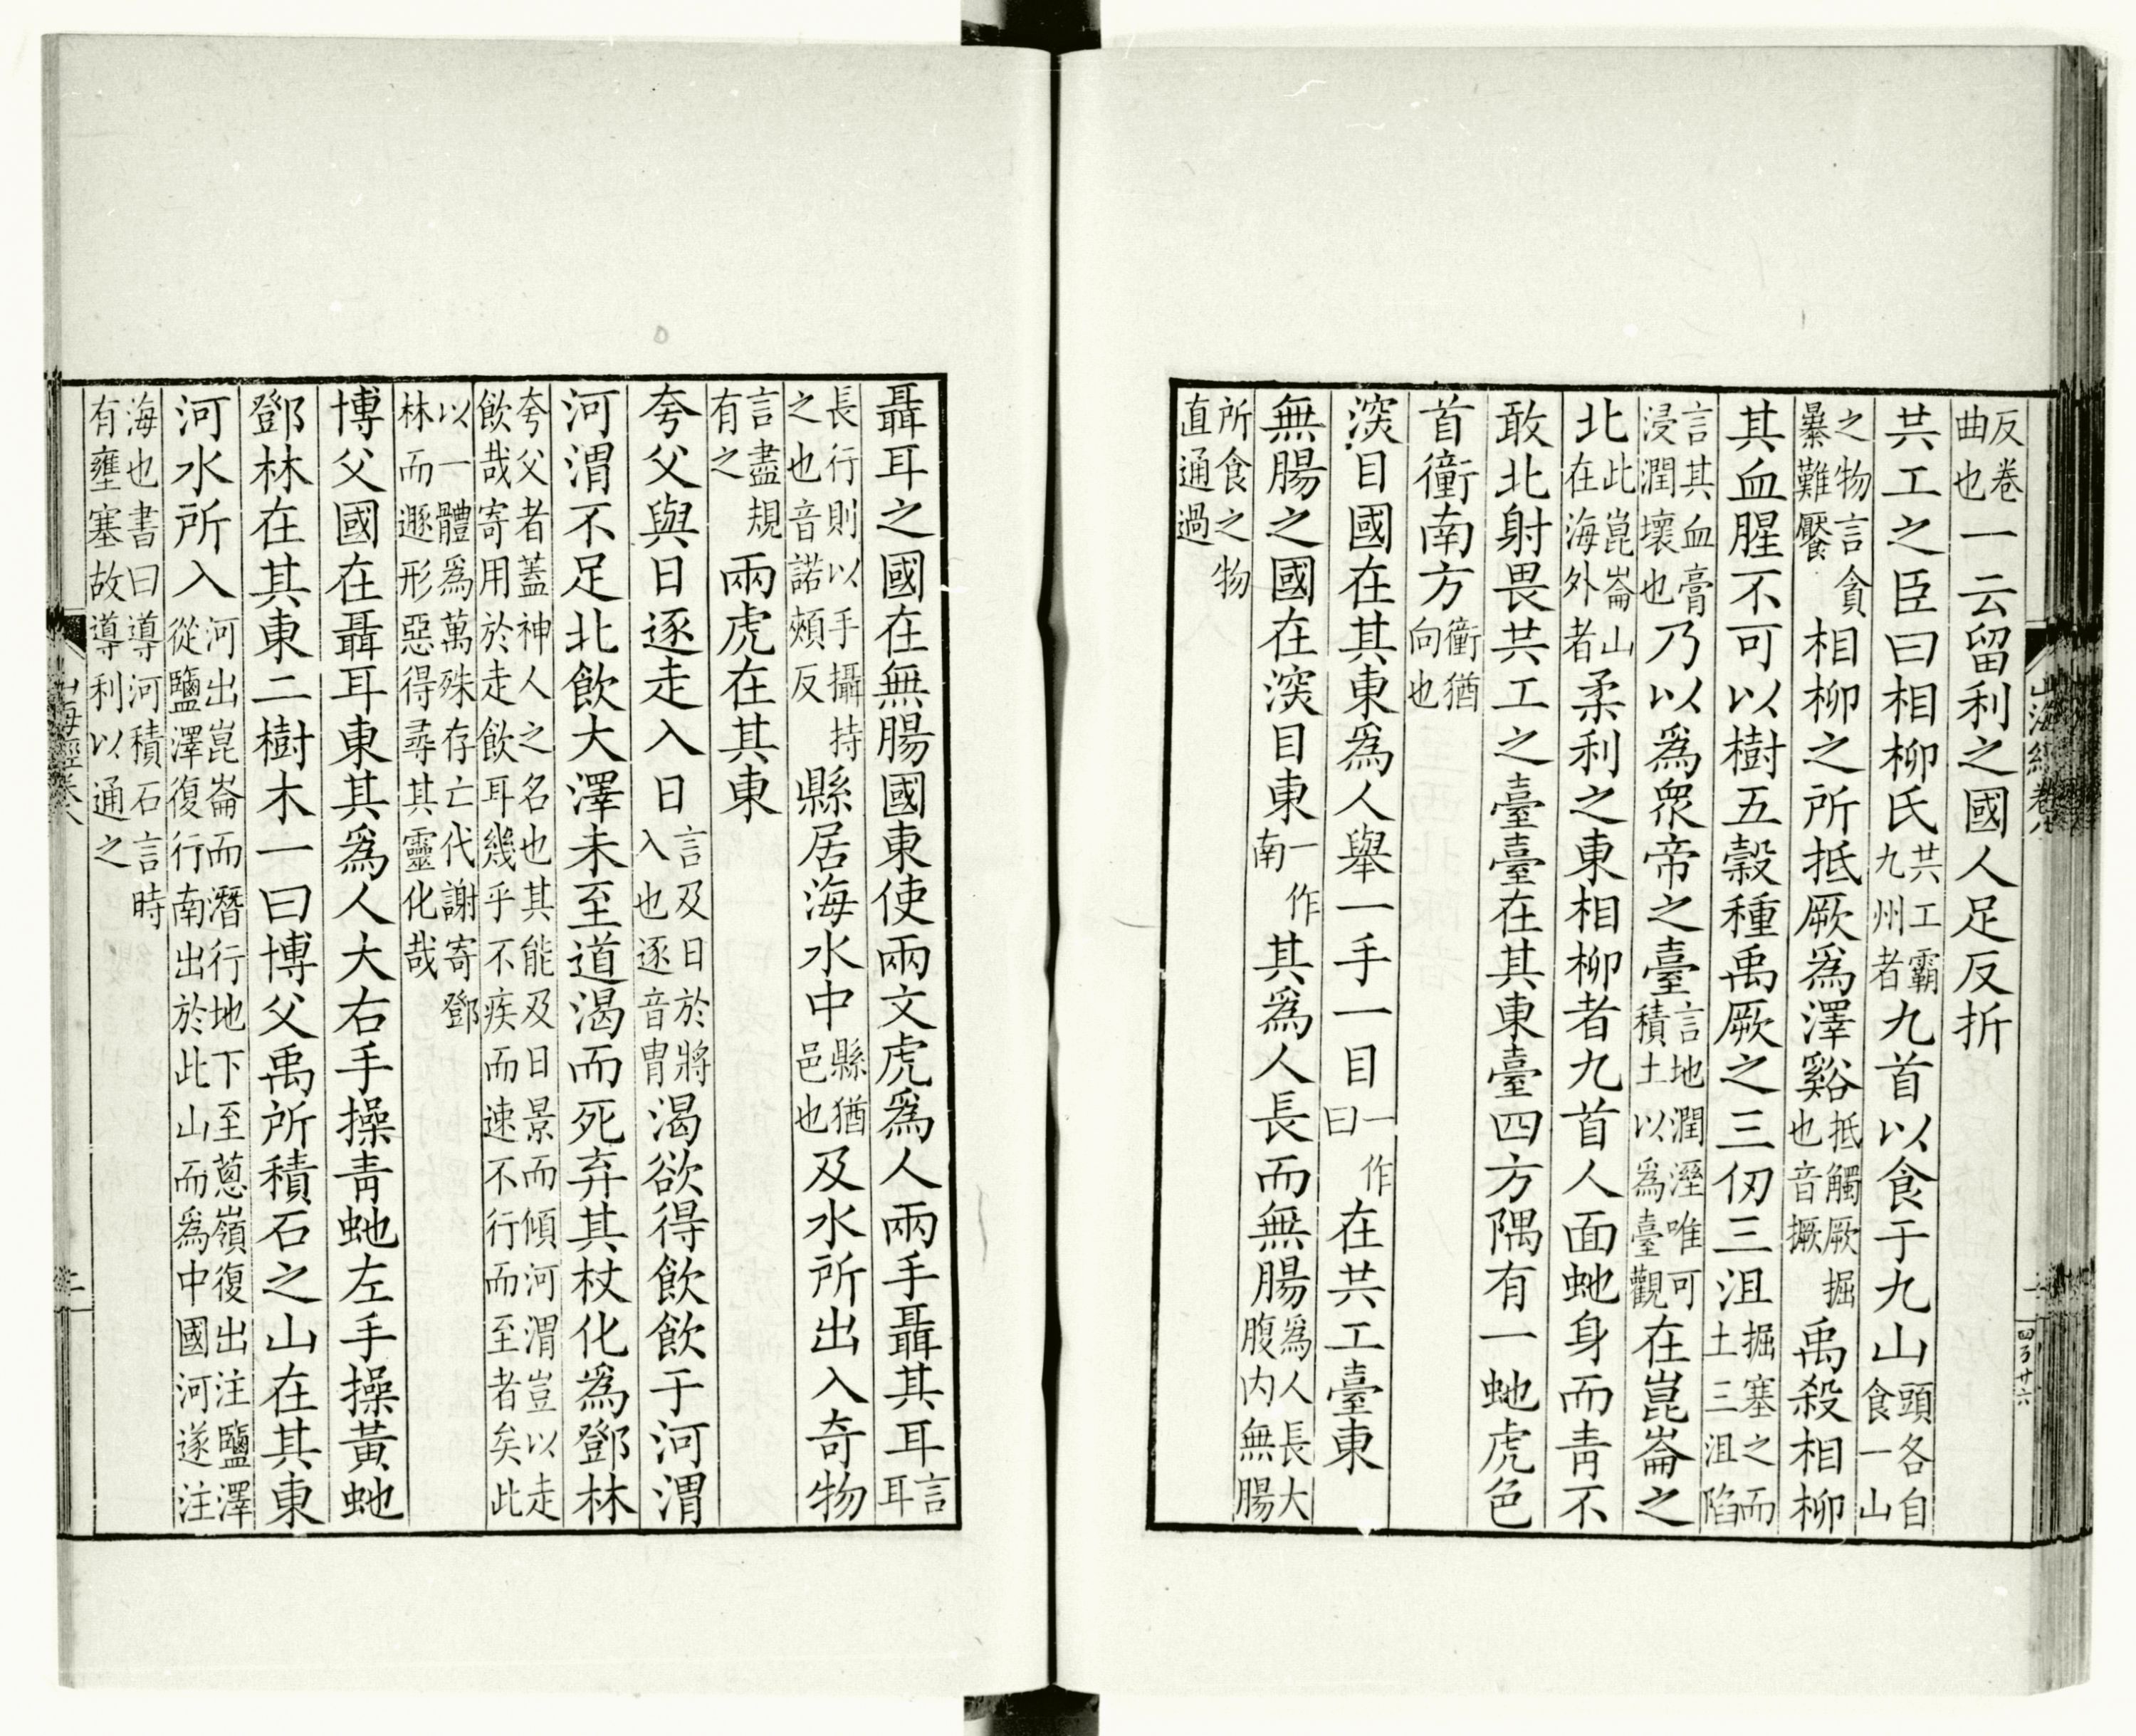 反卷曲也一云留利之國人足反折
共工之臣曰相柳氏共工霸九州者九首以食于九山頭各自食一山
之物言貪暴難饜相柳之所抵厥爲澤谿抵觸厥掘也音撅禹殺相柳
其血腥不可以樹五穀種禹厥之三仞三沮掘塞之而土三沮陷
言其血膏浸潤壞也乃以爲眾帝之臺言地潤溼唯可積土以爲臺觀在崑崙之
北此崑崙山在海外者柔利之東相柳者九首人面虵身而青不
敢北射畏共工之臺臺在其東臺四方隅有一虵虎色
首衝南方衝猶向也
深目國在其東爲人舉一手一目一作曰在共工臺東
無腸之國在深目東一作南其爲人長而無腸爲人長大腹内無腸
所食之物直通過
聶耳之國在無腸國東使兩文虎爲人兩手聶其耳言耳
長行則以手攝持之也音諾頰反縣居海水中縣猶邑也及水所出入奇物
言盡規有之兩虎在其東
夸父與日逐走入日言及日於將入也逐音胄渴欲得飲飲于河渭
河渭不足北飲大澤未至道渴而死弃其杖化爲鄧林
夸父者蓋神人之名也其能及日景而傾河渭豈以走飲哉寄用於走飲耳幾乎不疾而速不行而至者矣此
以一體爲萬殊存亡代謝寄鄧林而遯形惡得尋其靈化哉
博父國在聶耳東其爲人大右手操青虵左手操黃虵
鄧林在其東二樹木一曰博父禹所積石之山在其東
河水所入河出崑崙而潛行地下至蔥嶺復出注鹽澤從鹽澤復行南出於此山而爲中國河遂注
海也書曰導河積石言時有壅塞故導利以通之
山海經卷八